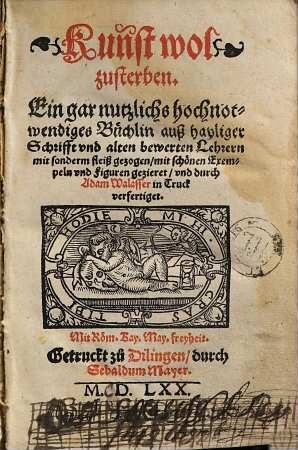 Kunst wol
zusterben.
Ein gar nutzlichs hochnot-
wendiges Büchlin auß hayliger
Schrifft vnd alten bewerten Lehrern
mit sonderm fleiß gezogen / mit schönen Exem-
peln vnd Figuren gezieret / vnd durch
Adam Walasser in Truck
verfertiget.
HODIE MIHI
CRAS TIBI
Mit Röm. Kay. May. freyheit.
Getruckt zů Dilingen / durch
Sebaldum Mayer.
M. D. LXX.